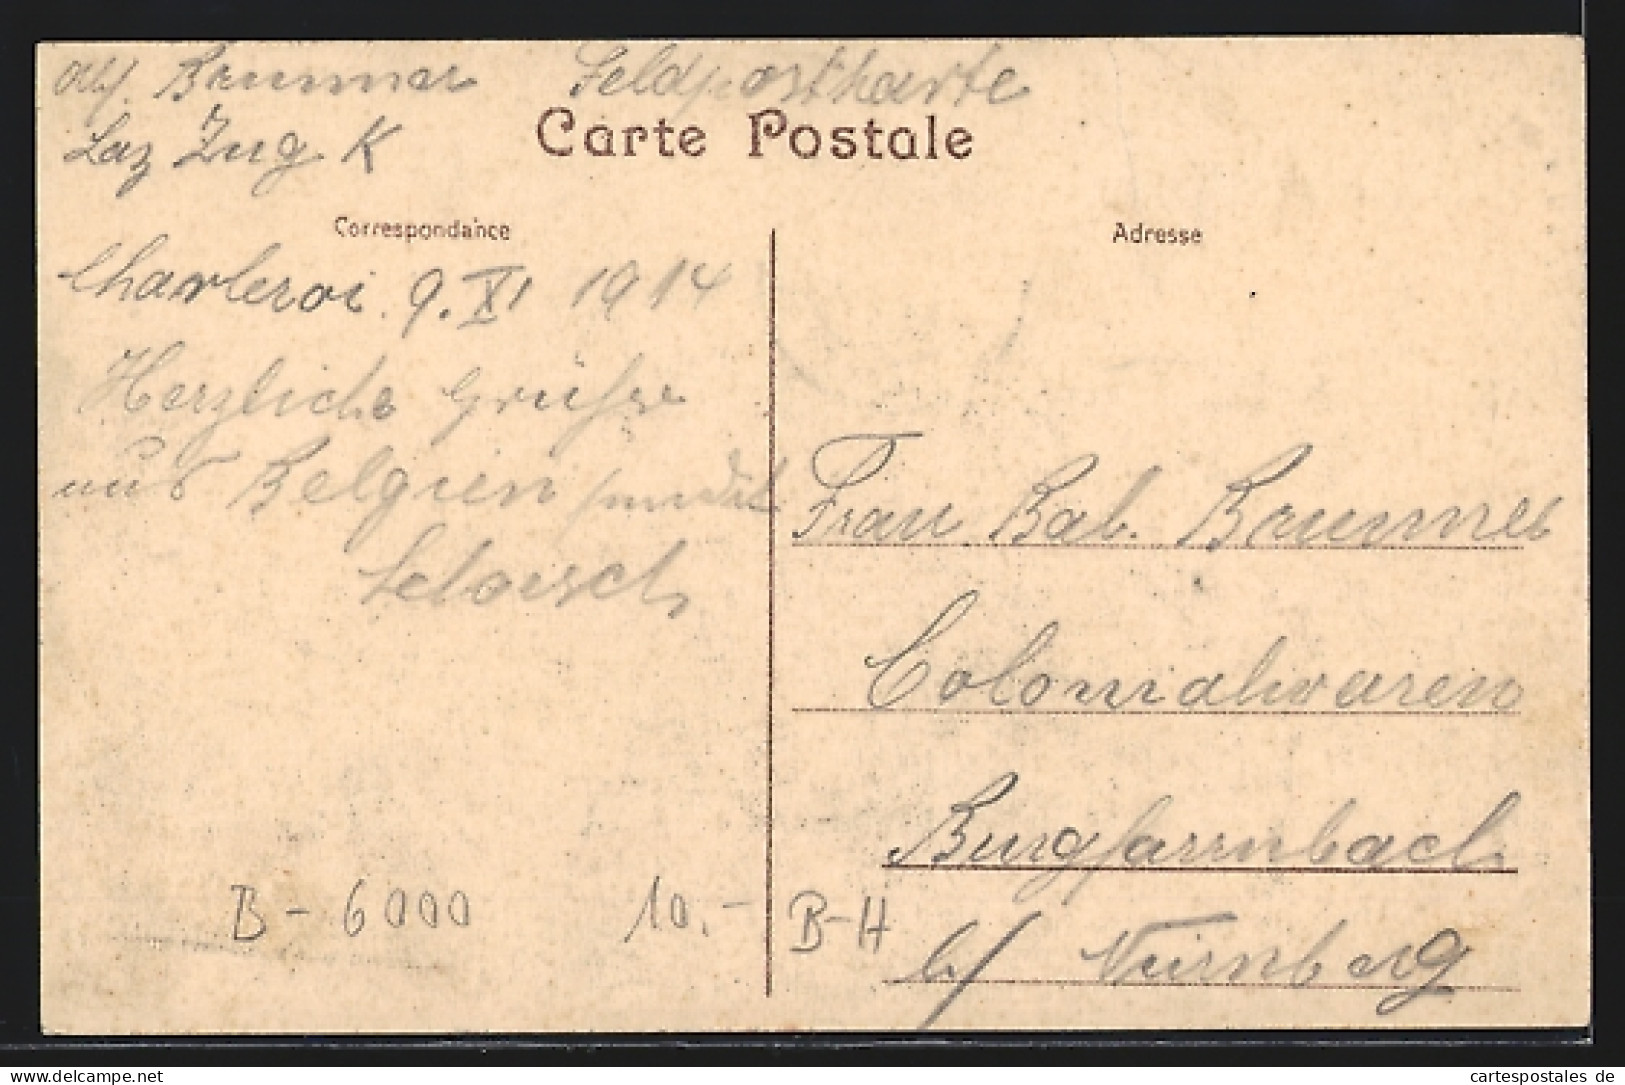 Brunner Feldpostkarte
Laz Zug K
Carte Postale
Correspondance
Adresse
Charleroi 9. XI 1914
Herzliche Grüße
aus Belgien sendet
Frau Bab. Brunner
Colonialwaren
Burgfarrnbach
b/ Nürnberg
B-6000 10.- B-H
delcampe.net
cartespostales de